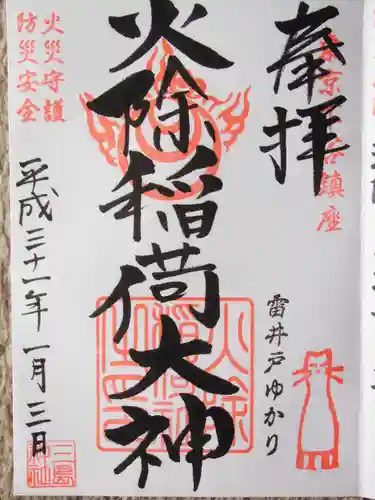 奉拝
鎮座
雷井戸ゆかり
火除稲荷大神
火災守護
防災安全
平成三十一年一月三日
三島神社